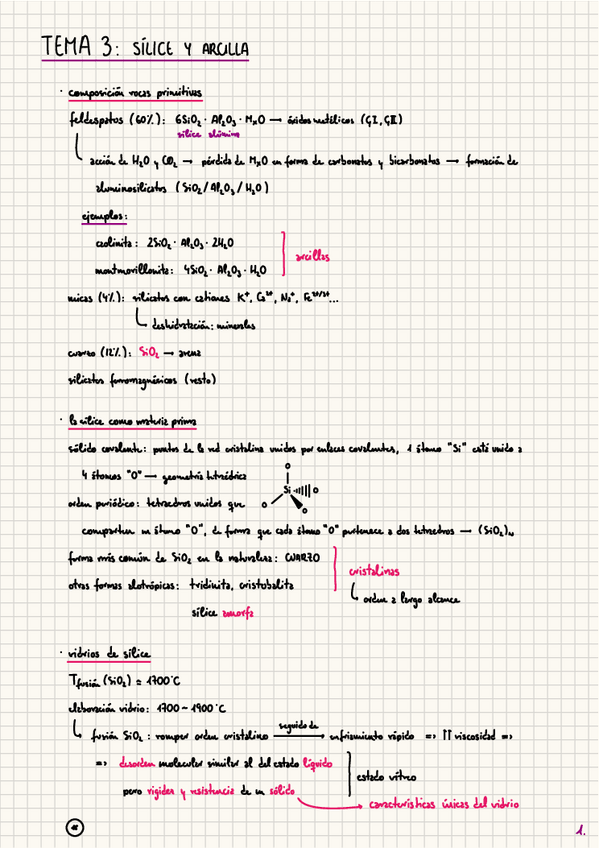 TEMA 3: SÍLICE Y ARCILLA
· composición rocas primitivas
feldespatos (60%): 6SiO₂ · Al₂O₃ · MₓO → óxidos metálicos (GI, GII)
sílice alúmina
acción de H₂O y CO₂ → pérdida de MₓO en forma de carbonatos y bicarbonatos → formación de
aluminosilicatos (SiO₂/Al₂O₃/H₂O)
ejemplos:
caolinita: 2SiO₂ · Al₂O₃ · 2H₂O
montmorillonita: 4SiO₂ · Al₂O₃ · H₂O
arcillas
micas (4%): silicatos con cationes K⁺, Ca²⁺, Na⁺, Fe²⁺/³⁺...
deshidratación: minerales
cuarzo (12%): SiO₂ → arena
silicatos ferromagnésicos (resto)
· la sílice como materia prima
sólido covalente: puntos de la red cristalina unidos por enlaces covalentes, 1 átomo "Si" está unido a
4 átomos "O" → geometría tetraédrica
O
Si O
O O
orden periódico: tetraedros unidos que
comparten un átomo "O", de forma que cada átomo "O" pertenece a dos tetraedros → (SiO₂)ₙ
forma más común de SiO₂ en la naturaleza: CUARZO
otras formas alotrópicas: tridimita, cristobalita
cristalinas
orden a largo alcance
sílice amorfa
· vidrios de sílice
Tfusión (SiO₂) ≈ 1700°C
elaboración vidrio: 1700-1900°C
fusión SiO₂: romper orden cristalino seguido de → enfriamiento rápido => ↑↑ viscosidad =>
=> desorden molecular similar al del estado líquido
pero rigidez y resistencia de un sólido
estado vítreo
características únicas del vidrio
1.